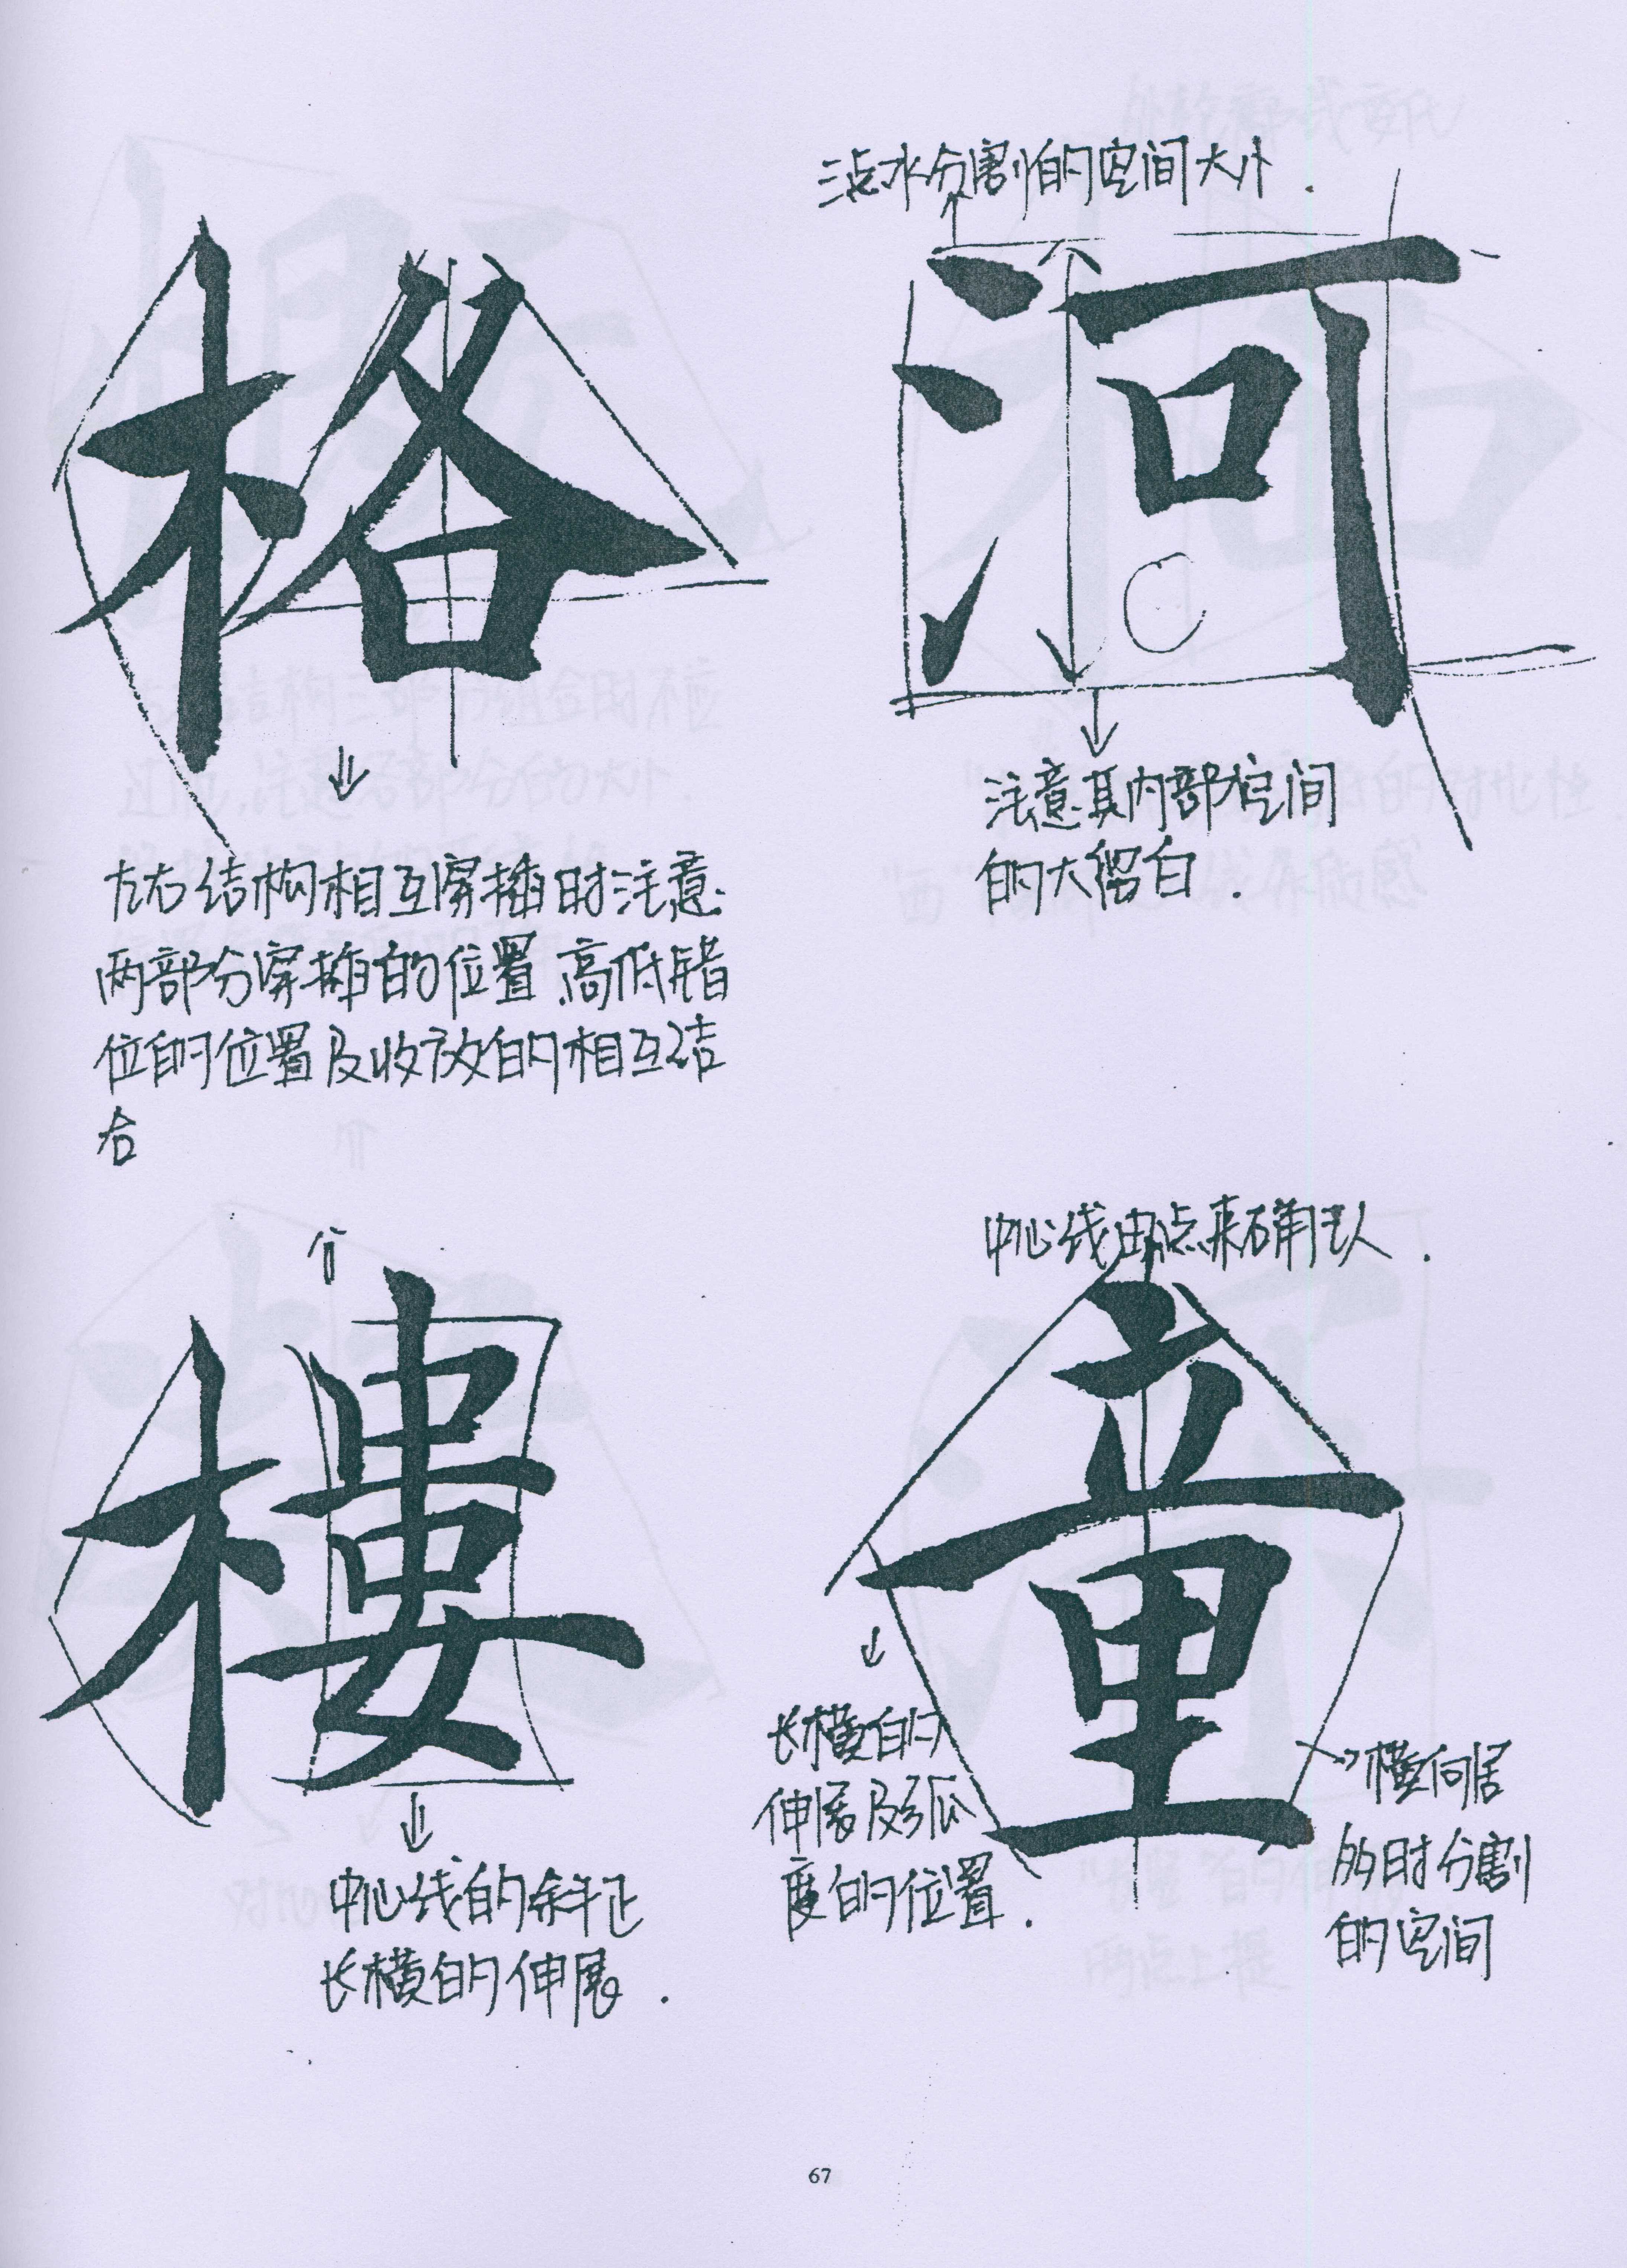 格
左右结构相互穿插时注意
两部分穿插的位置.高低错
位的位置及收放的相互结
合
三点水分割的空间大小.
河
注意其内部空间
的大留白.
樓
中心线的斜正
长横的伸展.
中心线由点来确认.
童
长横的
伸展及弧
度的位置.
横向居
多时分割
的空间
67